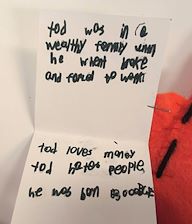 tod was in a
wealthy family untill
he whent broke
and forced to work
tod loves money
tod hates people
he was born